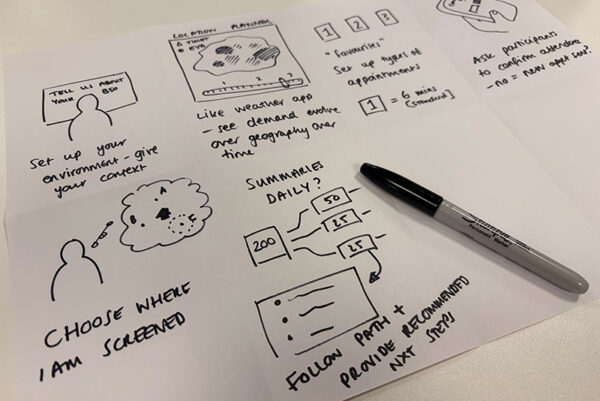 TELL US ABOUT
YOUR BSO
Set up your
environment - give
your context
LOCATION PLANNING
1 2 3
Like weather app
- see demand evolve
over geography over
time
1 2 3
"favourites"
Set up types of
appointments
1 = 6 mins
[standard]
Ask participants
to confirm attendance
- no = new appt sent?
A
B
C
CHOOSE WHERE
I AM SCREENED
SUMMARIES
DAILY?
200
50
25
25
FOLLOW PATH +
PROVIDE RECOMMENDED
NXT STEPS
Sharpie
Permanent Marker